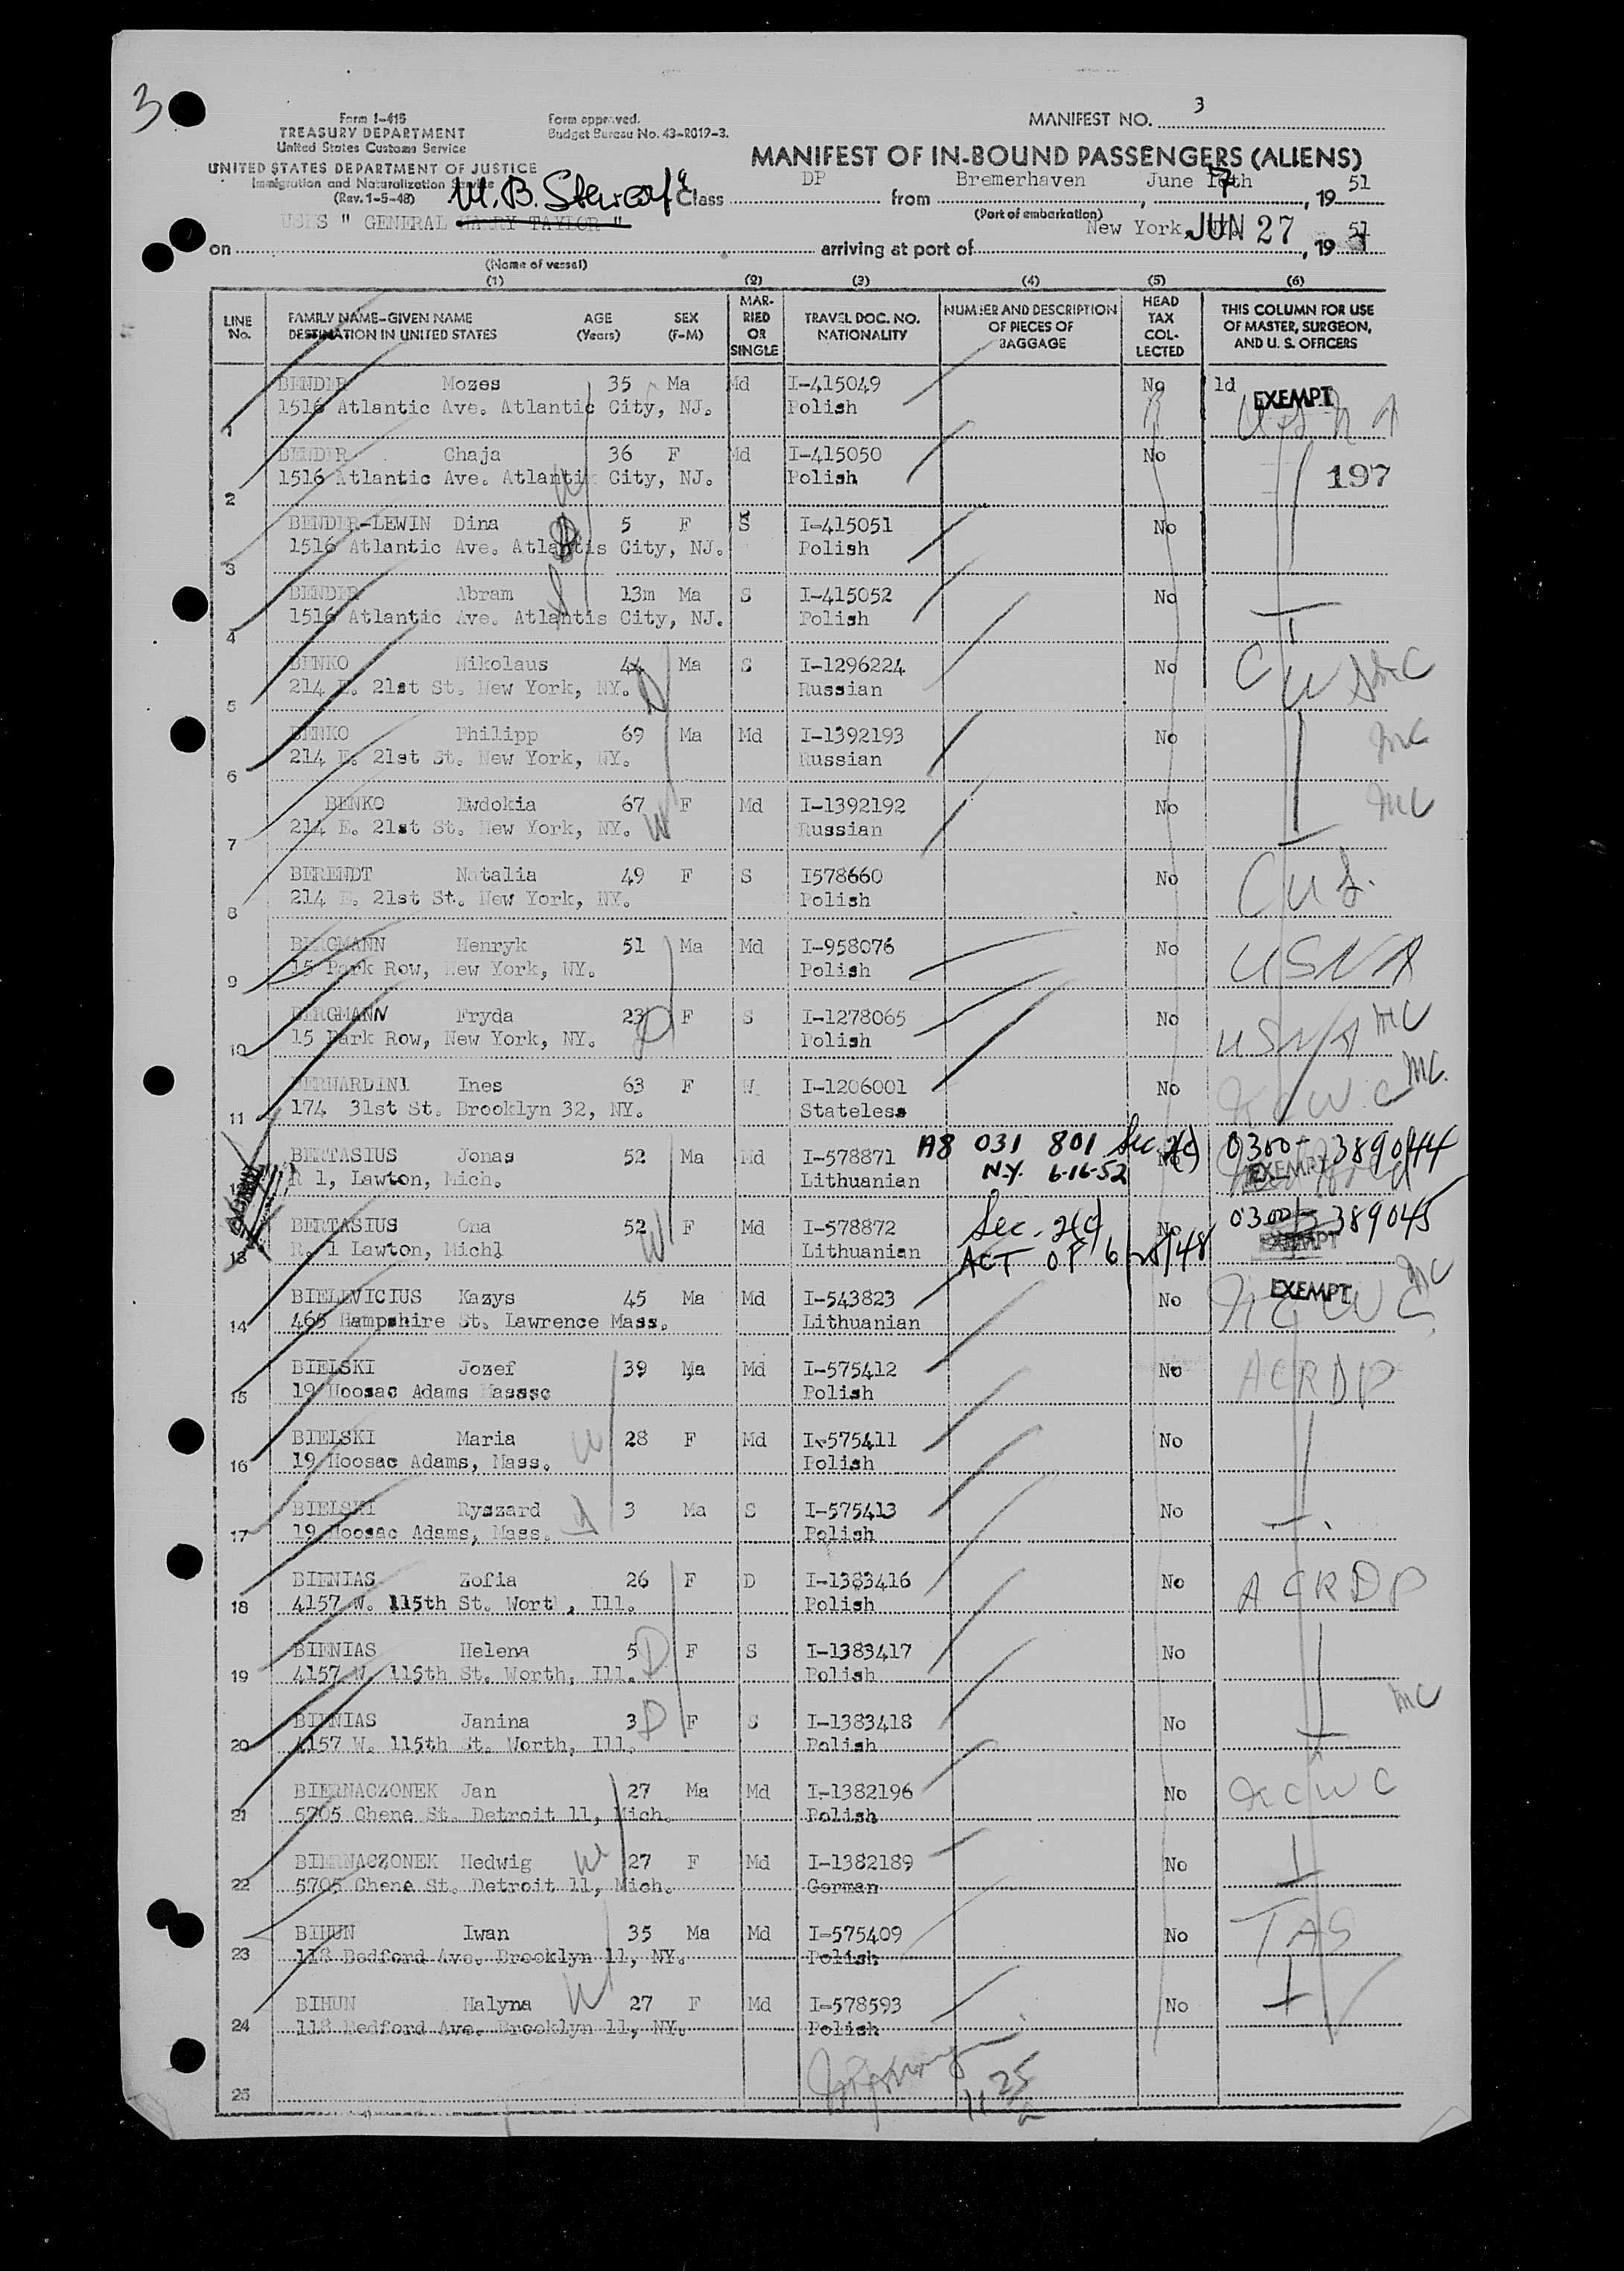 3
Form I-415
TREASURY DEPARTMENT
United States Customs Service
UNITED STATES DEPARTMENT OF JUSTICE
Immigration and Naturalization Service
(Rev. 1-5-48)
Form approved.
Budget Bureau No. 43-R019-3.
MANIFEST NO. 3
MANIFEST OF IN-BOUND PASSENGERS (ALIENS)
M. B. Stewart
Class DP from Bremerhaven, June 17th, 1951
(Port of embarkation)
on USNS " GENERAL HARRY TAYLOR " arriving at port of New York, NY. JUN 27, 1951
(Name of vessel)
(1) (2) (3) (4) (5) (6)
LINE No. FAMILY NAME-GIVEN NAME DESTINATION IN UNITED STATES AGE (Years) SEX (F-M) MARRIED OR SINGLE TRAVEL DOC. NO. NATIONALITY NUMBER AND DESCRIPTION OF PIECES OF BAGGAGE HEAD TAX COLLECTED THIS COLUMN FOR USE OF MASTER, SURGEON, AND U. S. OFFICERS
BENDER Mozes 35 Ma Md I-415049 No 1d EXEMPT
1 1516 Atlantic Ave. Atlantic City, NJ. Polish USNA
BENDER Chaja 36 F Md I-415050 No
2 1516 Atlantic Ave. Atlantic City, NJ. Polish 197
BENDER-LEWIN Dina 5 F S I-415051 No
3 1516 Atlantic Ave. Atlantis City, NJ. Polish
BENDER Abram 13m Ma S I-415052 No
4 1516 Atlantic Ave. Atlantis City, NJ. Polish
BENKO Nikolaus 44 Ma S I-1296224 No
5 214 E. 21st St. New York, NY. Russian
BENKO Philipp 69 Ma Md I-1392193 No MC
6 214 E. 21st St. New York, NY. Russian
BENKO Ewdokia 67 F Md I-1392192 No MC
7 214 E. 21st St. New York, NY. Russian
BERENDT Natalia 49 F S I578660 No CUS.
8 214 E. 21st St. New York, NY. Polish
BERGMANN Henryk 51 Ma Md I-958076 No USNA
9 15 Park Row, New York, NY. Polish
BERGMANN Fryda 23 F S I-1278065 No USNA MC
10 15 Park Row, New York, NY. Polish
BERNARDINI Ines 63 F W. I-1206001 No MC.
11 174 31st St. Brooklyn 32, NY. Stateless
BERTASIUS Jonas 52 Ma Md I-578871 A8 031 801 Sec 2(c) 0300-389044
R 1, Lawton, Mich. Lithuanian N.Y. 6-16-52 EXEMPT
BERTASIUS Ona 52 F Md I-578872 Sec. 2(c) No 0300-389045
13 R. 1 Lawton, Michl Lithuanian ACT OF 6/25/48 EXEMPT
BIELEVICIUS Kazys 45 Ma Md I-543823 No EXEMPT NCWC MC
14 466 Hampshire St. Lawrence Mass. Lithuanian
BIELSKI Jozef 39 Ma Md I-575412 No ACRDP
15 19 Hoosac Adams Masssc Polish
BIELSKI Maria 28 F Md I-575411 No
16 19 Hoosac Adams, Mass. Polish
BIELSKI Ryszard 3 Ma S I-575413 No
17 19 Hoosac Adams, Mass. Polish
BIENIAS Zofia 26 F D I-1383416 No ACRDP
18 4157 W. 115th St. Worth, Ill. Polish
BIENIAS Helena 5 F S I-1383417 No
19 4157 W. 115th St. Worth, Ill. Polish
BIENIAS Janina 3 F S I-1383418 No MC
20 4157 W. 115th St. Worth, Ill. Polish
BIERNACZONEK Jan 27 Ma Md I-1382196 No NCWC
21 5705 Chene St. Detroit 11, Mich. Polish
BIERNACZONEK Hedwig 27 F Md I-1382189 No
22 5705 Chene St. Detroit 11, Mich. German
BIHUN Iwan 35 Ma Md I-575409 No TAS
23 118 Bedford Ave. Brooklyn 11, NY. Polish
BIHUN Halyna 27 F Md I-578593 No
24 118 Bedford Ave. Brooklyn 11, NY. Polish
25